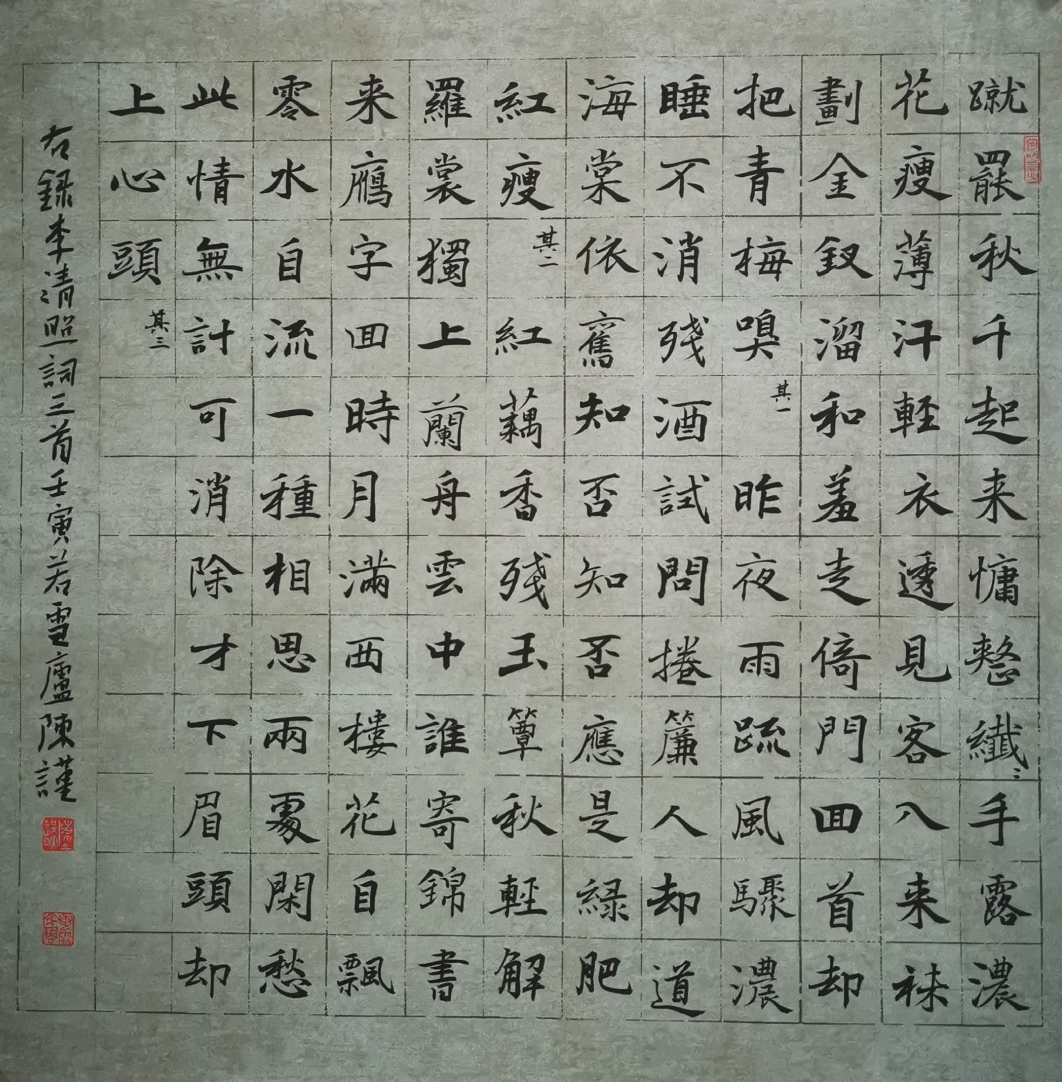 蹴罷秋千起来慵整纖〻手露濃
花瘦薄汗輕衣透見客入来袜
劃金釵溜和羞走倚門回首却
把青梅嗅其一昨夜雨疏風驟濃
睡不消残酒試問捲簾人却道
海棠依舊知否知否應是緑肥
紅瘦其二紅藕香残玉簟秋輕解
羅裳獨上蘭舟雲中誰寄錦書
来鴈字回時月满西樓花自飄
零水自流一種相思兩處閑愁
此情無計可消除才下眉頭却
上心頭其三
右録李清照詞三首壬寅若雪廬陳謹